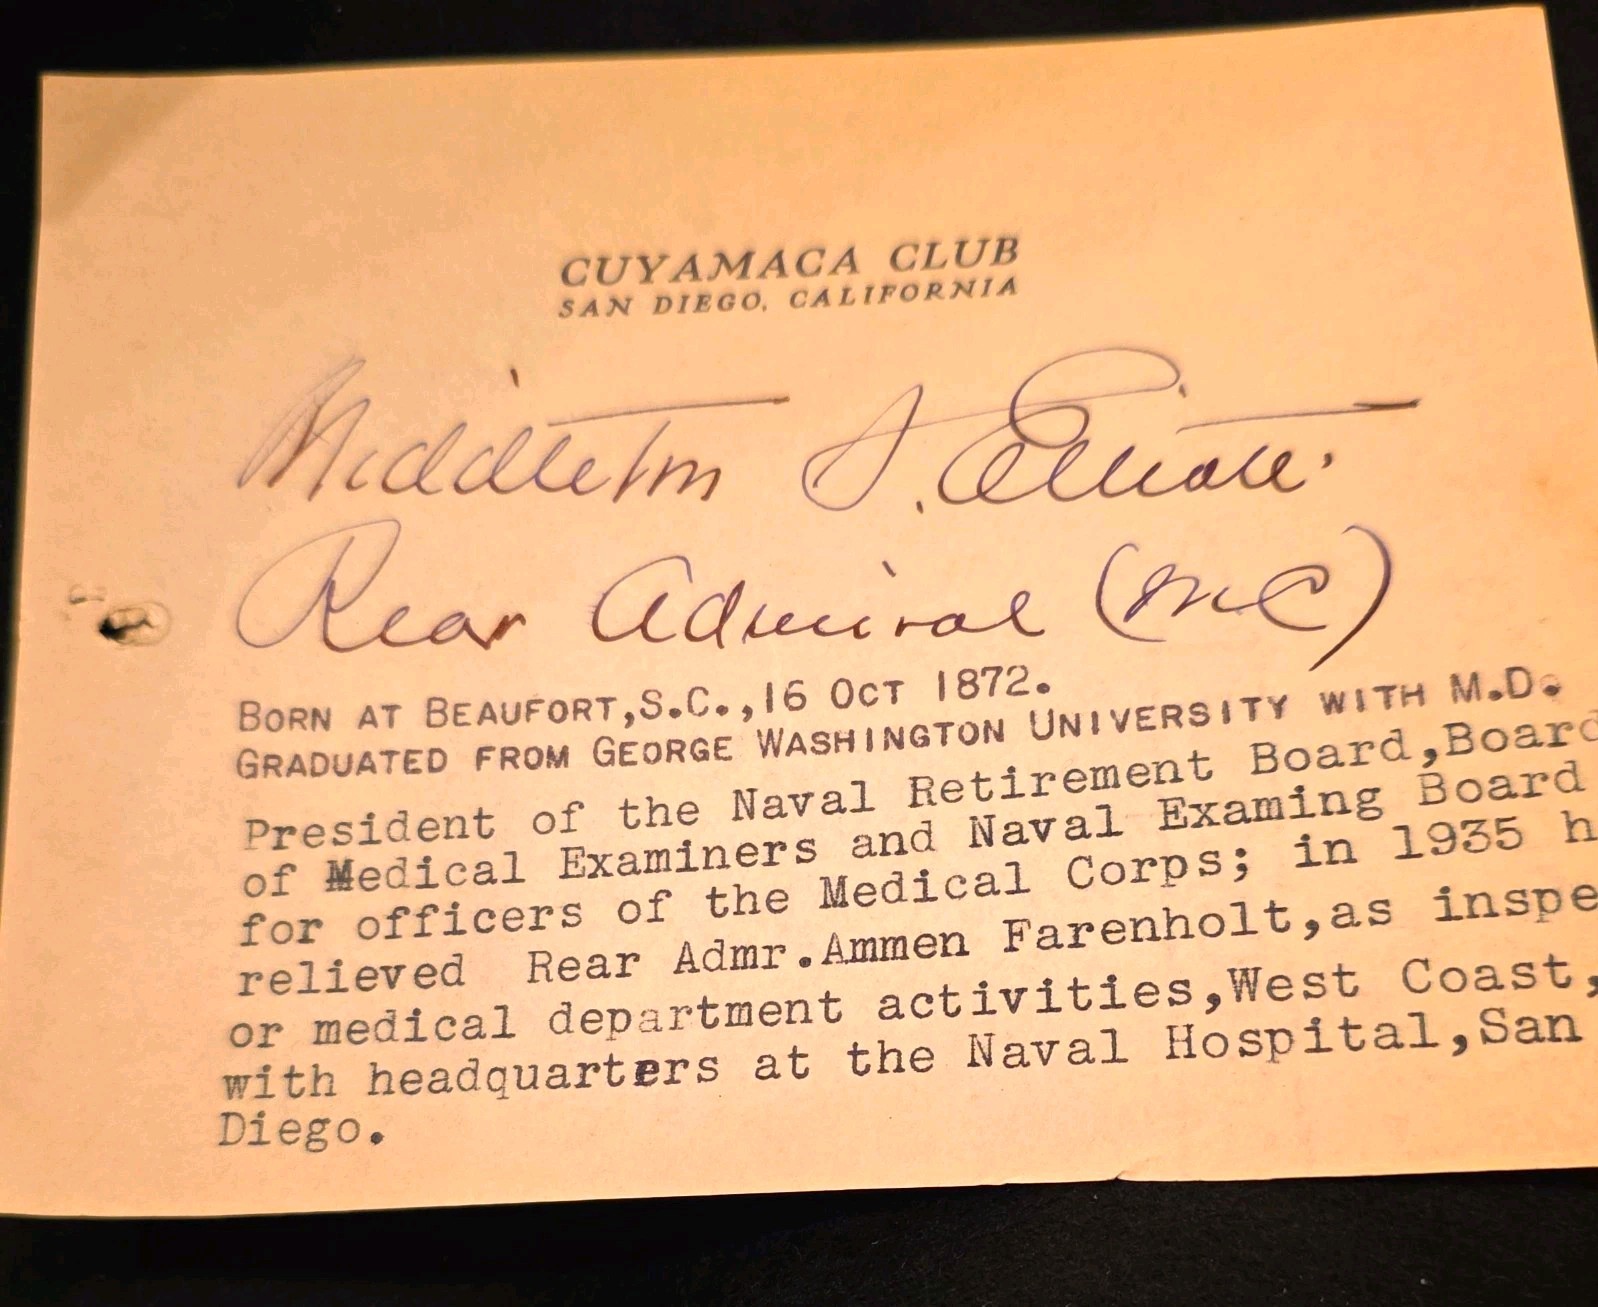 CUYAMACA CLUB
SAN DIEGO, CALIFORNIA
Middleton S. Elliott.
Rear Admiral (MC)
BORN AT BEAUFORT,S.C.,16 OCT 1872.
GRADUATED FROM GEORGE WASHINGTON UNIVERSITY WITH M.D.
President of the Naval Retirement Board,Board
of Medical Examiners and Naval Examing Board
for officers of the Medical Corps; in 1935 h
relieved Rear Admr.Ammen Farenholt,as inspe
or medical department activities,West Coast,
with headquarters at the Naval Hospital,San
Diego.